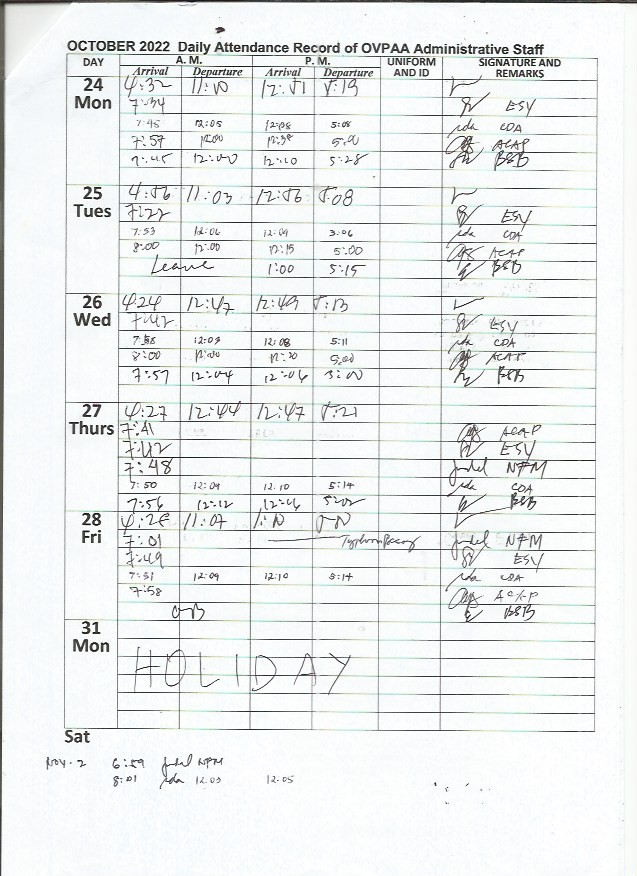 OCTOBER 2022 Daily Attendance Record of OVPAA Administrative Staff
DAY A. M. P. M. UNIFORM AND ID SIGNATURE AND REMARKS
Arrival Departure Arrival Departure
24 Mon 4:32 11:10 12:51 5:19
7:34 ESY
7:45 12:05 12:08 5:08 CDA
7:57 12:00 12:38 5:00 ACAP
7:45 12:00 12:10 5:28 BSB
25 Tues 4:56 11:03 12:56 5:08
7:22 ESY
7:53 12:06 12:09 3:06 CDA
8:00 12:00 12:15 5:00 ACAP
Leave 1:00 5:15 BSB
26 Wed 4:24 12:47 12:49 5:13
7:42 ESY
7:58 12:03 12:08 5:11 CDA
8:00 12:00 12:20 5:00 ACAP
7:57 12:04 12:06 5:00 BSB
27 Thurs 4:27 12:44 12:47 5:21
7:41 ACAP
7:42 ESY
7:48 NFM
7:50 12:09 12:10 5:14 CDA
7:56 12:12 12:16 5:02 BSB
28 Fri 4:28 11:07 1:10
7:01 Typhoon NFM
7:49 ESY
7:51 12:09 12:10 5:14 CDA
7:58 ACAP
OB BSB
31 Mon
HOLIDAY
Sat
Nov. 2 6:59 NFM
8:01 12.03 12.05